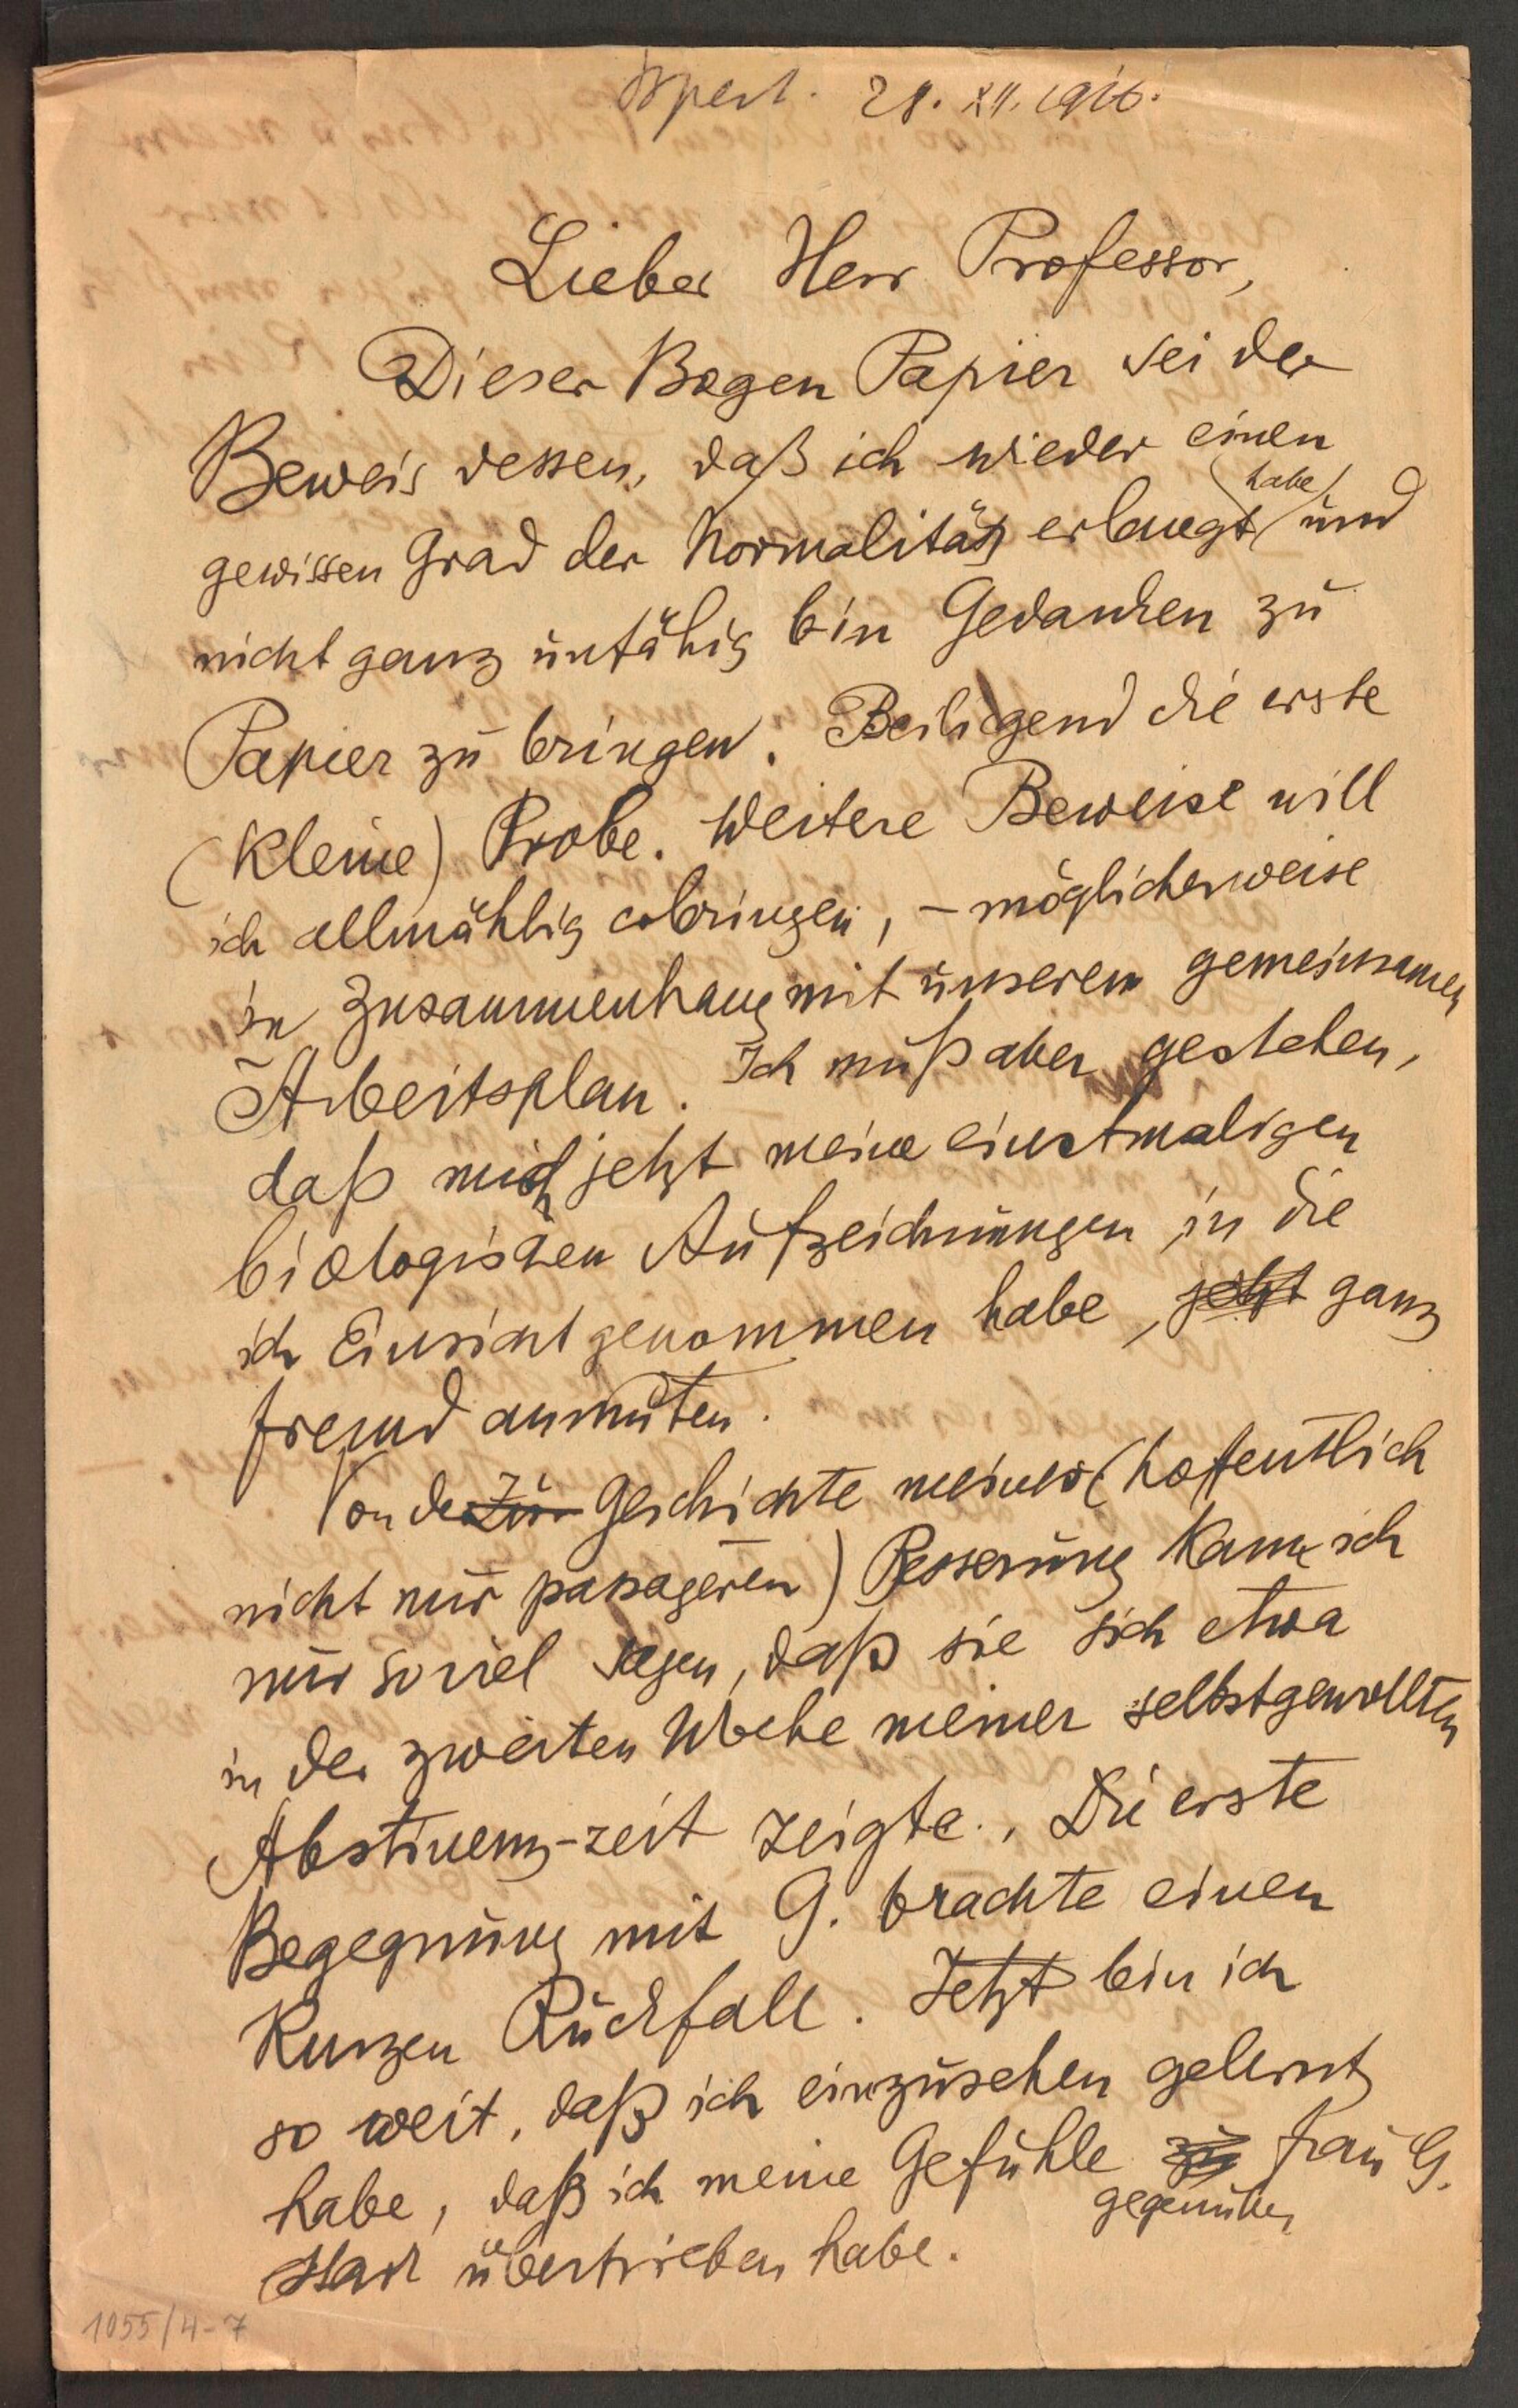 Bpest. 28. XII. 1916.
Lieber Herr Professor,
Dieser Bogen Papier sei der
Beweis dessen, daß ich wieder einen
gewissen Grad der Normalität erlangt (habe) und
nicht ganz unfähig bin Gedanken zu
Papier zu bringen. Beiligend die erste
(kleine) Probe. Weitere Beweise will
ich allmählig erbringen, – möglicherweise
in Zusammenhang mit unserem gemeinsamen
Arbeitsplan. Ich muß aber gestehen,
daß mich jetzt meine einstmaligen
biologischen Aufzeichnungen in die
ich Einsicht genommen habe, jetzt ganz
fremd anmuten.
Von der Zur Geschichte meiner (hoffentlich
nicht nur passageren) Besserung kann ich
nur soviel sagen, daß sie sich etwa
in der zweiten Woche meiner selbstgewollten
Abstinenz-zeit zeigte. Die erste
Begegnung mit G. brachte einen
kurzen Rückfall. Jetzt bin ich
so weit, daß ich einzusehen gelernt
habe, daß ich meine Gefühle zu Frau G.
gegenüber
stark übertrieben habe.
1055/4-7